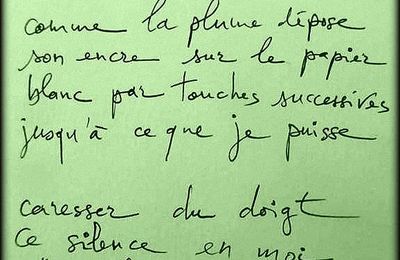 comme la plume dépose
son encre sur le papier
blanc par touches successives
jusqu'à ce que je puisse
caresser du doigt
ce silence en moi